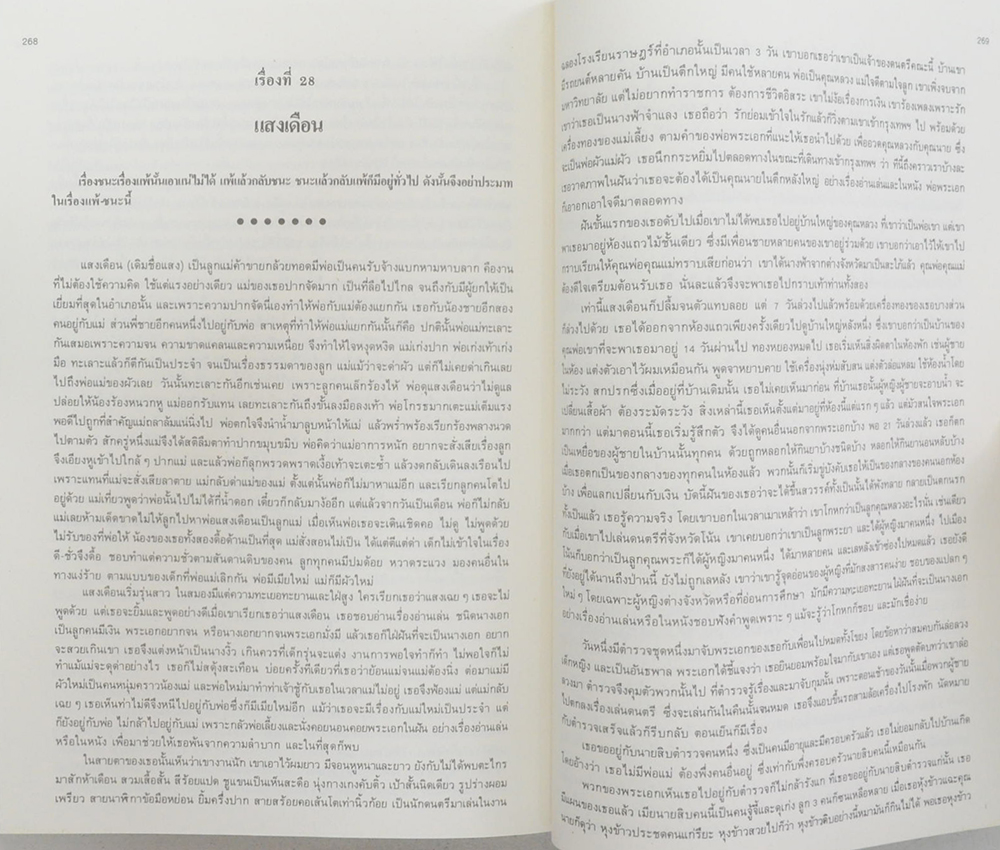 268
เรื่องที่ 28
แสงเดือน
เรื่องชนะเรื่องแพ้นั้นเอาแน่ไม่ได้ แพ้แล้วกลับชนะ ชนะแล้วกลับแพ้ก็มีอยู่ทั่วไป ดังนั้นจึงอย่าประมาท
ในเรื่องแพ้-ชนะนี้
แสงเดือน (เดิมชื่อแสง) เป็นลูกแม่ค้าขายกล้วยทอดมีพ่อเป็นคนรับจ้างแบกหามหาบลาก คืองาน
ที่ไม่ต้องใช้ความคิด ใช้แต่แรงอย่างเดียว แม่ของเธอปากจัดมาก เป็นที่ลือไปไกล จนถึงกับมีผู้ยกให้เป็น
เยี่ยมที่สุดในอำเภอนั้น และเพราะความปากจัดนี่เองทำให้พ่อกับแม่ต้องแยกกัน เธอกับน้องชายอีกสอง
คนอยู่กับแม่ ส่วนพี่ชายอีกคนหนึ่งไปอยู่กับพ่อ สาเหตุที่ทำให้พ่อแม่แยกกันนั้นก็คือ ปกตินั้นพ่อแม่ทะเลาะ
กันเสมอเพราะความจน ความขาดแคลนและความเหนื่อย จึงทำให้ใจหงุดหงิด แม่เก่งปาก พ่อเก่งเท้าเก่ง
มือ ทะเลาะแล้วก็ตีกันเป็นประจำ จนเป็นเรื่องธรรมดาของลูก แม่แม้ว่าจะด่าผัว แต่ก็ไม่เคยด่าเกินเลย
ไปถึงพ่อแม่ของผัวเลย วันนั้นทะเลาะกันอีกเช่นเคย เพราะลูกคนเล็กร้องไห้ พ่อดุแสงเดือนว่าไม่ดูแล
ปล่อยให้น้องร้องหนวกหู แม่ออกรับแทน เลยทะเลาะกันถึงขั้นลงมือลงเท้า พ่อโกรธมากเตะแม่เต็มแรง
พอดีไปถูกที่สำคัญแม่ถลาล้มแน่นิ่งไป พ่อตกใจจึงนำน้ำมาลูบหน้าให้แม่ แล้วพร่ำพร้องเรียกร้องพลางนวด
ไปตามตัว สักครู่หนึ่งแม่จึงได้สติลืมตาทำปากขมุบขมิบ พ่อคิดว่าแม่อาการหนัก อยากจะสั่งเสียเรื่องลูก
จึงเอียงหูเข้าไปใกล้ๆ ปากแม่ และแล้วพ่อก็ลุกพรวดพราดเงื้อเท้าจะเตะซ้ำ แล้วงดกลับเดินลงเรือนไป
เพราะแทนที่แม่จะสั่งเสียลาตาย แม่กลับด่าแม่ของแม่ ตั้งแต่นั้นพ่อก็ไม่มาหาแม่อีก และเรียกลูกคนโตไป
อยู่ด้วย แม่เที่ยวพูดว่าพ่อนั้นไปไม่ได้กี่น้ำดอก เดี๋ยวก็กลับมาง้ออีก แต่แล้วจากวันเป็นเดือน พ่อก็ไม่กลับ
แม่เลยห้ามเด็ดขาดไม่ให้ลูกไปหาพ่อแสงเดือนเป็นลูกแม่ เมื่อเห็นพ่อเธอจะเดินเชิดคอ ไม่ดู ไม่พูดด้วย
ไม่รับของที่พ่อให้ น้องของเธอทั้งสองดื้อด้านเป็นที่สุด แม่สั่งสอนไม่เป็น ได้แต่ตีแต่ด่า เด็กไม่เข้าใจในเรื่อง
ดี-ชั่วจึงดื้อ ชอบทำแต่ความชั่วตามสันดานดิบของคน ลูกทุกคนมีปมด้อย หวาดระแวง มองคนอื่นใน
ทางแง่ร้าย ตามแบบของเด็กที่พ่อแม่เลิกกัน พ่อมีเมียใหม่ แม่ก็มีผัวใหม่
แสงเดือนเริ่มรุ่นสาว ในสมองมีแต่ความทะเยอทะยานและใฝ่สูง ใครเรียกเธอว่าแสงเฉยๆ เธอจะไม่
พูดด้วย แต่เธอจะยิ้มและพูดอย่างดีเมื่อเขาเรียกเธอว่าแสงเดือน เธอชอบอ่านเรื่องอ่านเล่น ชนิดนางเอก
เป็นลูกคนมีเงิน พระเอกยากจน หรือนางเอกยากจนพระเอกมั่งมี แล้วเธอก็ใฝ่ฝันที่จะเป็นนางเอก อยาก
จะสวยเกินเขา เธอจึงแต่งหน้าเป็นนางงิ้ว เกินควรที่เด็กรุ่นจะแต่ง งานการพอใจทำก็ทำ ไม่พอใจก็ไม่
ทำแม้แม่จะดุด่าอย่างไร เธอก็ไม่สะดุ้งสะเทือน บ่อยครั้งที่เดียวที่เธอว่าย้อนแม่จนแม่ต้องนิ่ง ต่อมาแม่มี
ผัวใหม่เป็นคนหนุ่มคราวน้องแม่ และพ่อใหม่มาทำท่าเจ้าชู้กับเธอในเวลาแม่ไม่อยู่ เธอจึงฟ้องแม่ แต่แม่กลับ
เฉยๆ เธอเห็นท่าไม่ดีจึงหนีไปอยู่กับพ่อซึ่งก็มีเมียใหม่อีก แม้ว่าเธอจะมีเรื่องกับแม่ใหม่เป็นประจำ แต่
ก็ยังอยู่กับพ่อ ไม่กล้าไปอยู่กับแม่ เพราะกลัวพ่อเลี้ยงและนั่งคอยนอนคอยพระเอกในฝัน อย่างเรื่องอ่านเล่น
หรือในหนัง เพื่อมาช่วยให้เธอพ้นจากความลำบาก และในที่สุดก็พบ
ในสายตาของเธอนั้นเห็นว่าเขางามนัก เขาเอาไว้ผมยาว มีจอนหูหนาและยาว ยังกับไม่ได้พบตะไกร
มาสักห้าเดือน สวมเสื้อสั้น สีร้อยแปด ชูแขนเป็นเห็นสะดือ นุ่งกางเกงคับติ้ว เป้าสั้นนิดเดียว รูปร่างผอม
เพรียว สายนาฬิกาข้อมือหย่อน ยิ้มครึ่งปาก สายสร้อยคอเส้นโตเท่านิ้วก้อย เป็นนักดนตรีมาเล่นในงาน
269
ฉลองโรงเรียนราษฎร์ที่อำเภอนั้นเป็นเวลา 3 วัน เขาบอกเธอว่าเขาเป็นเจ้าของดนตรีคณะนี้ บ้านเขา
มีรถยนต์หลายคัน บ้านเป็นตึกใหญ่ มีคนใช้หลายคน พ่อเป็นคุณหลวง แม่ใจดีตามใจลูก เขาเพิ่งจบจาก
มหาวิทยาลัย แต่ไม่อยากทำราชการ ต้องการชีวิตอิสระ เขาไม่ง้อเรื่องการเงิน เขาร้องเพลงเพราะรัก
เขาว่าเธอเป็นนางฟ้าจำแลง เธอถือว่า รักย่อมเข้าใจในรักแล้วก็วิ่งตามเขาเข้ากรุงเทพฯ ไป พร้อมด้วย
เครื่องทองของแม่เลี้ยง ตามคำของพ่อพระเอกที่แนะให้เธอนำไปด้วย เพื่ออวดคุณหลวงกับคุณนาย ซึ่ง
จะเป็นพ่อผัวแม่ผัว เธอนึกกระหยิ่มไปตลอดทางในขณะที่เดินทางเข้ากรุงเทพฯ ว่า ทีนี้ถึงคราวเราบ้างละ
เธอวาดภาพในฝันว่าเธอจะต้องได้เป็นคุณนายในตึกหลังใหญ่ อย่างเรื่องอ่านเล่นและในหนัง พ่อพระเอก
ก็เอาอกเอาใจดีมาตลอดทาง
ฝันชั้นแรกของเธอดับไปเมื่อเขาไม่ได้พบเธอไปอยู่บ้านใหญ่ของคุณหลวง ที่เขาว่าเป็นพ่อเขา แต่เขา
พาเธอมาอยู่ห้องแถวไม้ชั้นเดียว ซึ่งมีเพื่อนชายหลายคนของเขาอยู่ร่วมด้วย เขาบอกว่าเอาไว้ให้เขาไป
กราบเรียนให้คุณพ่อคุณแม่ทราบเสียก่อนว่า เขาได้นางฟ้าจากต่างจังหวัดมาเป็นสะใภ้แล้ว คุณพ่อคุณแม่
ต้องดีใจเตรียมต้อนรับเธอ นั่นละแล้วจึงจะพาเธอไปกราบเท้าท่านทั้งสอง
เท่านี้แสงเดือนก็ปลื้มจนตัวแทบลอย แต่ 7 วันล่วงไปแล้วพร้อมด้วยเครื่องทองของเธอบางส่วน
ก็ล่วงไปด้วย เธอได้ออกจากห้องแถวเพียงครั้งเดียวไปดูบ้านใหญ่หลังหนึ่ง ซึ่งเขาบอกว่าเป็นบ้านของ
คุณพ่อเขาที่จะพาเธอมาอยู่ 14 วันผ่านไป ทองหยองหมดไป เธอเริ่มเห็นสิ่งผิดตาในห้องพัก เช่นผู้ชาย
ในห้อง แต่งตัวเอาไว้ผมเหมือนกัน พูดจาหยาบคาย ใช้เครื่องนุ่งห่มสับสน แต่งตัวล่อนหลม ใช้ห้องน้ำโดย
ไม่ระวัง สกปรกซึ่งเมื่ออยู่ที่บ้านเดิมนั้น เธอไม่เคยเห็นมาก่อน ที่บ้านเธอนั้นผู้หญิงผู้ชายจะอาบน้ำ จะ
เปลี่ยนเสื้อผ้า ต้องระมัดระวัง สิ่งเหล่านี้เธอเห็นตั้งแต่มาอยู่ที่ห้องนี้แต่แรกๆ แล้ว แต่มัวสนใจพระเอก
มากกว่า แต่มาตอนนี้เธอเริ่มรู้สึกตัว จึงได้ดูคนอื่นนอกจากพระเอกบ้าง พอ 21 วันล่วงแล้ว เธอก็ตก
เป็นเหยื่อของผู้ชายในบ้านนั้นทุกคน ด้วยถูกหลอกให้กินยาบ้างชนิดบ้าง หลอกให้กินยานอนหลับบ้าง
เมื่อเธอตกเป็นของกลางของทุกคนในห้องแล้ว พวกนั้นก็เริ่มขู่บังคับเธอให้เป็นของกลางของคนนอกห้อง
บ้าง เพื่อแลกเปลี่ยนกับเงิน บัดนี้ฝันของเธอว่าจะได้ขึ้นสวรรค์ทั้งเป็นนั้นได้พังทลาย กลายเป็นตกนรก
ทั้งเป็นแล้ว เธอรู้ความจริง โดยเขาบอกในเวลาเมาเหล้าว่า เขาโกหกว่าเป็นลูกคุณหลวงอะไรนั่น เช่นเดียว
กับเมื่อเขาไปเล่นดนตรีที่จังหวัดโน้น เขาเคยบอกว่าเขาเป็นลูกพระยา และได้ผู้หญิงมาคนหนึ่ง ไปเมือง
โน้นก็บอกว่าเป็นลูกคุณพระก็ได้ผู้หญิงมาคนหนึ่ง ได้มาหลายคน และเหลังเข้าซ่องไปหมดแล้ว เธอยังดี
ที่ยังอยู่ได้นานถึงบ้านนี้ ยังไม่ถูกเลหลัง เขาว่าเขารู้จุดอ่อนของผู้หญิงที่มักสงสารคนง่าย ชอบของแปลกๆ
ใหม่ๆ โดยเฉพาะผู้หญิงต่างจังหวัดหรือที่อ่อนการศึกษา มักมีความทะเยอทะยานใฝ่ฝันที่จะเป็นนางเอก
อย่างเรื่องอ่านเล่นหรือในหนังชอบฟังคำพูดเพราะๆ แม้จะรู้ว่าโกหกก็ชอบ และมักเชื่อง่าย
วันหนึ่งมีตำรวจชุดหนึ่งมาจับพระเอกของเธอกับเพื่อนไปหมดทั้งโขยง โดยข้อหาว่าสมคบกันล่อลวง
เด็กหญิง และเป็นอันธพาล พระเอกได้ชี้แจงว่า เธอยินยอมพร้อมใจมากับเขาเอง แต่เธอพูดตัดบทว่าเขาล่อ
ลวงมา ตำรวจจึงคุมตัวพวกนั้นไป ที่ตำรวจรู้เรื่องและมาจับกุมนั้น เพราะตอนเช้าของวันนั้นเมื่อพวกผู้ชาย
ไปตกลงเรื่องเล่นดนตรี ซึ่งจะเล่นกันในคืนนั้นจนหมด เธอจึงแอบขึ้นรถสามล้อเครื่องไปโรงพัก นัดหมาย
กับตำรวจเสร็จแล้วก็รีบกลับ ตอนเย็นก็มีเรื่อง
เธอขออยู่กับนายสิบตำรวจคนหนึ่ง ซึ่งเป็นคนมีอายุและมีครอบครัวแล้ว เธอไม่ยอมกลับไปบ้านเกิด
โดยอ้างว่า เธอไม่มีพ่อแม่ ต้องพึ่งคนอื่นอยู่ ซึ่งเท่ากับพึ่งครอบครัวนายสิบคนนี้เหมือนกัน
พวกของพระเอกเห็นเธอไปอยู่กับตำรวจก็ไม่กล้ารังแก ที่เธออยู่กับนายสิบตำรวจแก่นั้น เธอ
มีแผนของเธอแล้ว เมียนายสิบคนนี้เป็นคนจู้จี้และดุเก่ง ลูก 3 คนก็ซนเหลือหลาย เมื่อเธอหุงข้าวแฉะคุณ
นายก็ดุว่า หุงข้าวประชดคนแก่รึยะ หุงข้าวสวยไปก็ว่า หุงข้าวดิบอย่างนี้หมามันก็กินไม่ได้ พอเธอหุงข้าว